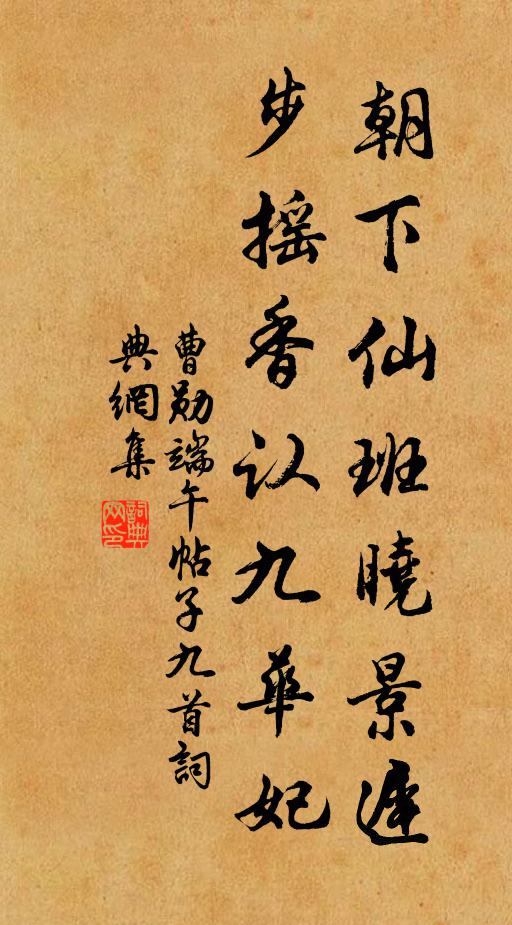 朝下仙班曉景遲
步摇香认九華妃
曹勛端午帖子九首詞
典網集
詞典网印